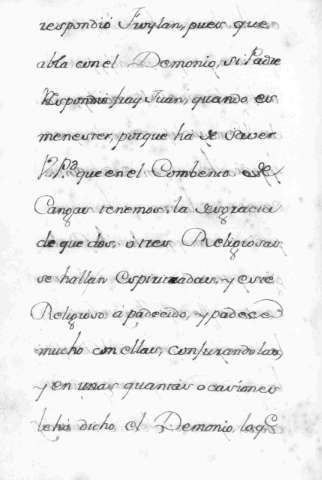 respondió Fuylan, pues que
abla con el Demonio, si Padre
Respondió fray Juan, quando es
menester, porque ha de saver
V. Pd. que en el Combento de
Cangas tenemos la desgracia
de que dos, o tres Religiosas
se hallan espirituadas, y este
Religioso a padecido, y padece
mucho con ellas, conjurandolas,
y en unas quantas ocasiones
le ha dicho el Demonio, lo q